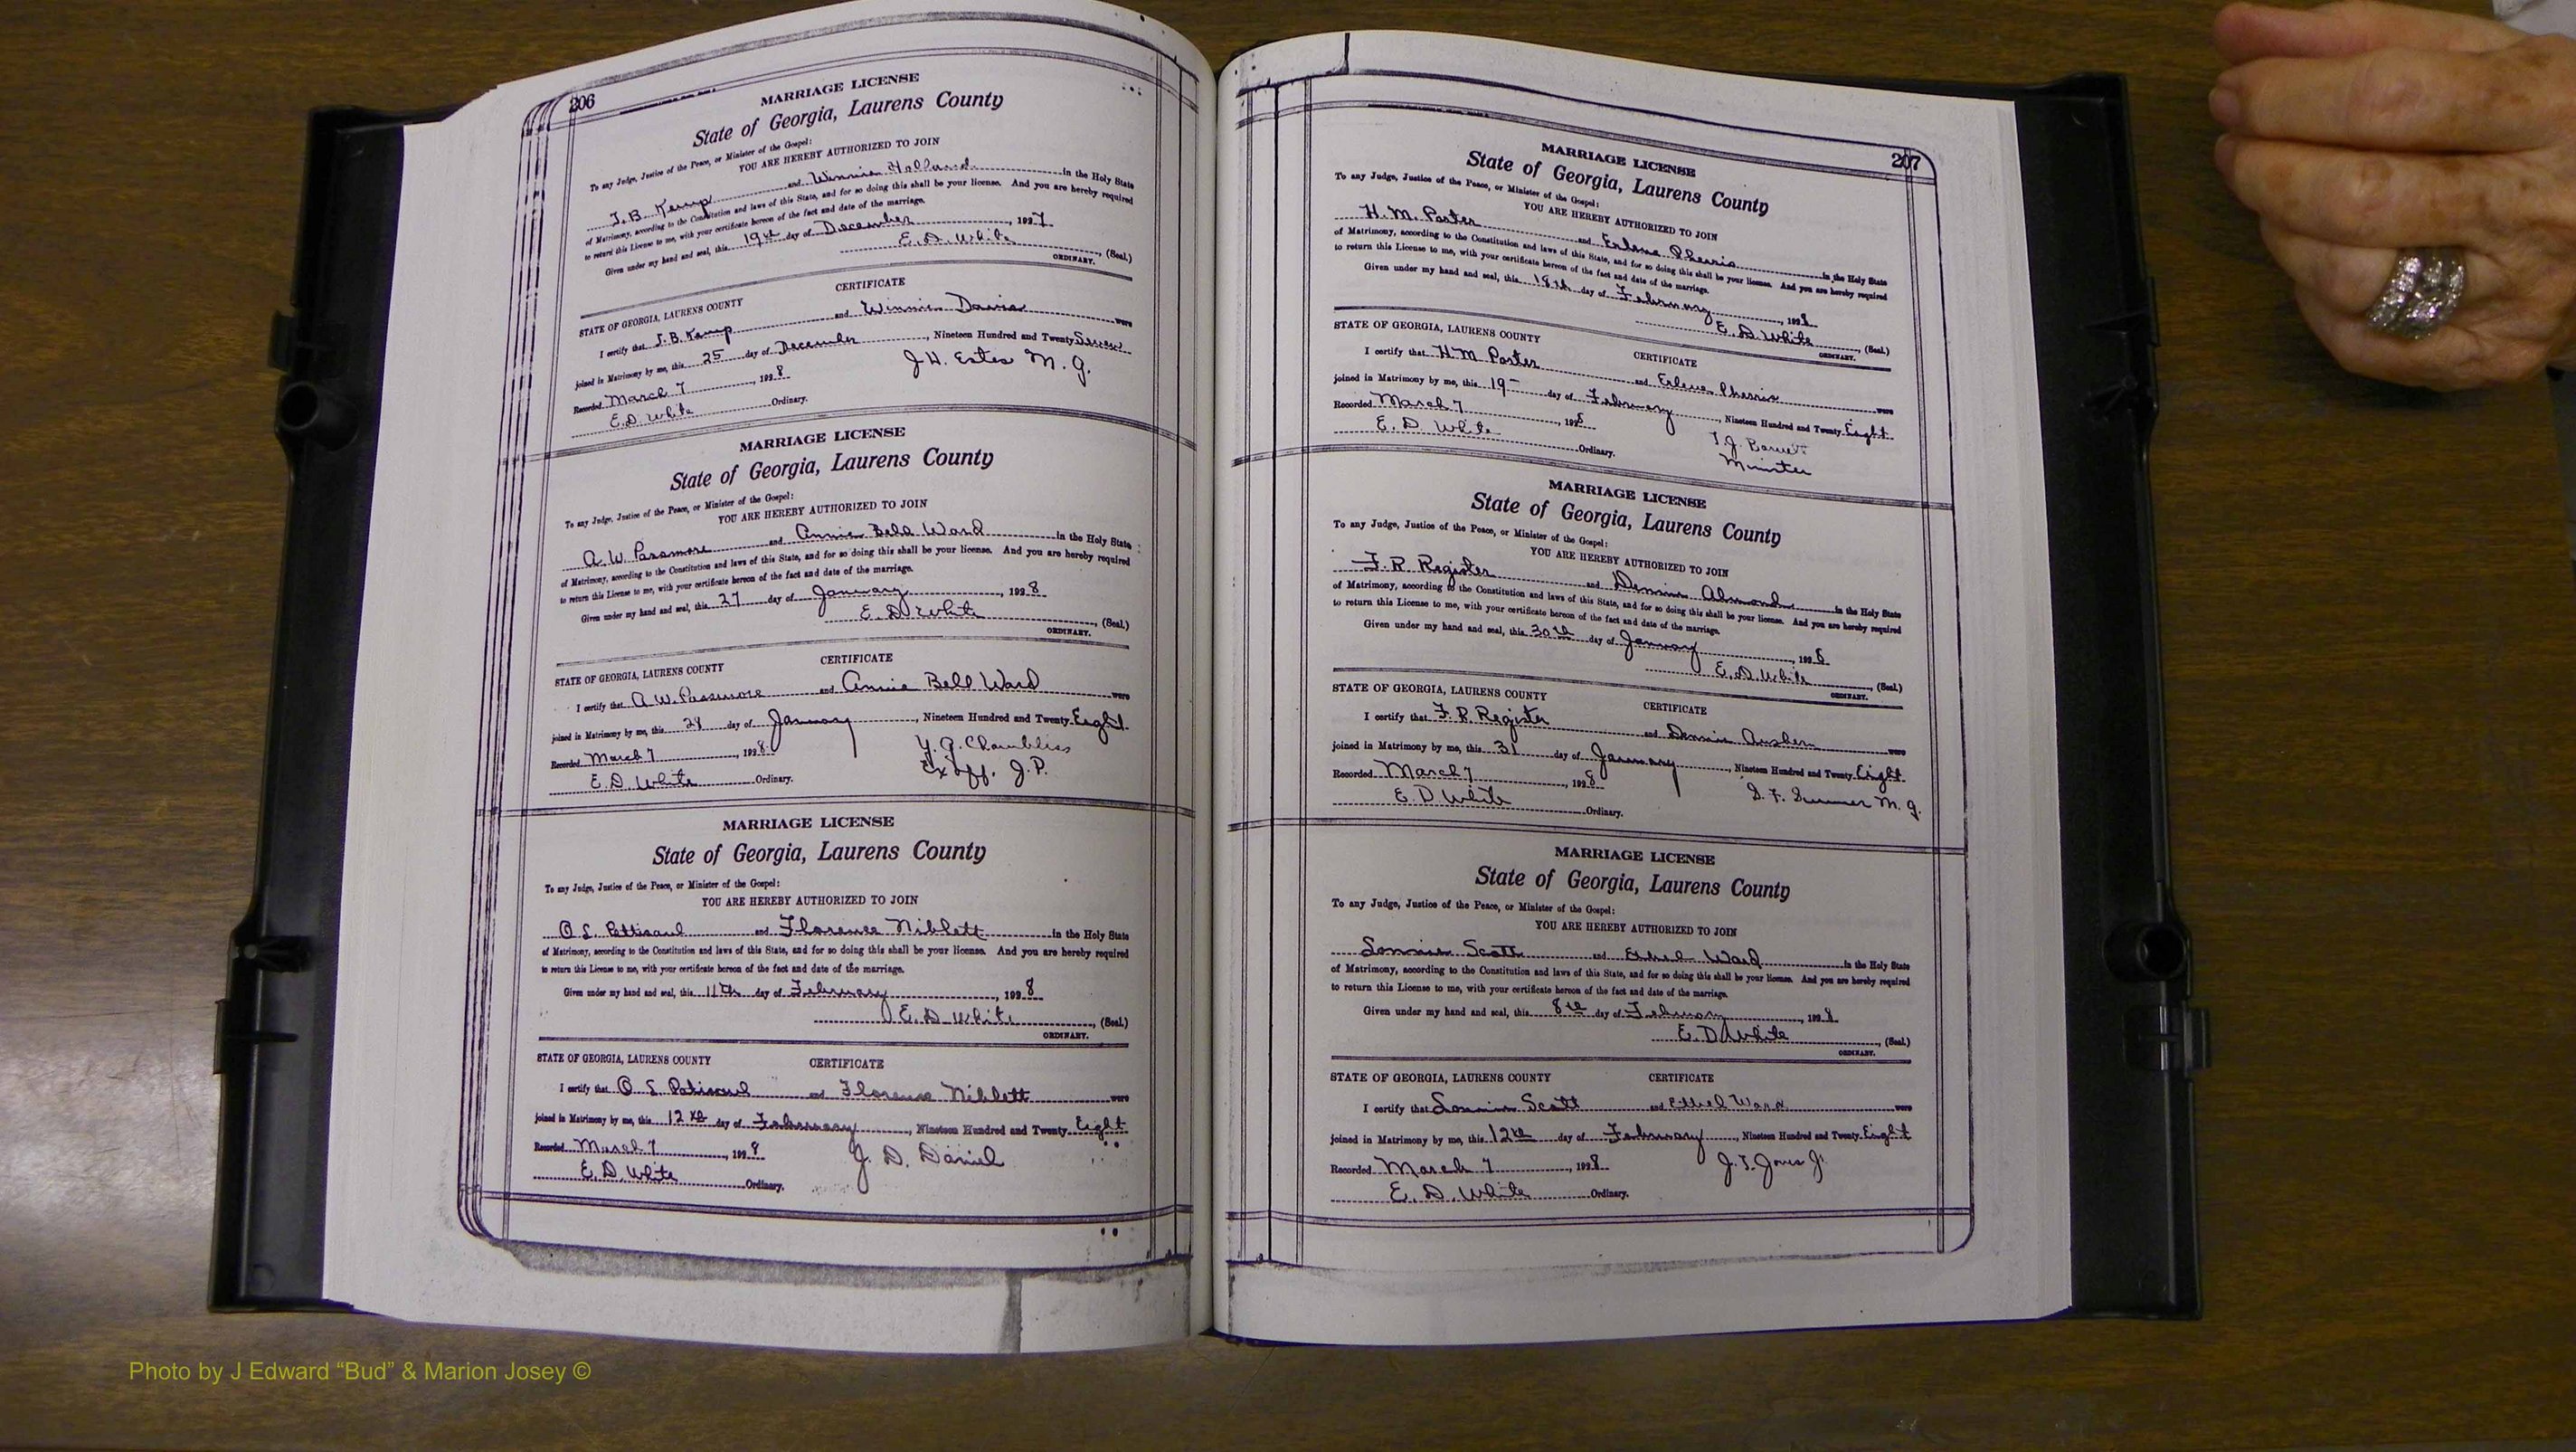 206
MARRIAGE LICENSE
State of Georgia, Laurens County
To any Judge, Justice of the Peace, or Minister of the Gospel:
YOU ARE HEREBY AUTHORIZED TO JOIN
J.B. Kemp and Winnie Holland in the Holy State
of Matrimony, according to the Constitution and laws of this State, and for so doing this shall be your license. And you are hereby required
to return this License to me, with your certificate hereon of the fact and date of the marriage.
Given under my hand and seal, this 19th day of December, 1927
E. D. White, (Seal.)
ORDINARY.
CERTIFICATE
STATE OF GEORGIA, LAURENS COUNTY
I certify that J.B. Kemp and Winnie Davis were
joined in Matrimony by me, this 25 day of December, Nineteen Hundred and Twenty Seven
Recorded March 7, 1928 J H. Estes M. G.
E.D. White Ordinary.
MARRIAGE LICENSE
State of Georgia, Laurens County
To any Judge, Justice of the Peace, or Minister of the Gospel:
YOU ARE HEREBY AUTHORIZED TO JOIN
A. W. Passmore and Annie Bell Ward in the Holy State
of Matrimony, according to the Constitution and laws of this State, and for so doing this shall be your license. And you are hereby required
to return this License to me, with your certificate hereon of the fact and date of the marriage.
Given under my hand and seal, this 27 day of January, 1928
E. D. White, (Seal.)
ORDINARY.
STATE OF GEORGIA, LAURENS COUNTY CERTIFICATE
I certify that A W. Passmore and Annie Bell Ward were
joined in Matrimony by me, this 28 day of January, Nineteen Hundred and Twenty Eight
Recorded March 7, 1928 Y. G. Chambliss
E. D. White Ordinary. Ex Off. J. P.
MARRIAGE LICENSE
State of Georgia, Laurens County
To any Judge, Justice of the Peace, or Minister of the Gospel:
YOU ARE HEREBY AUTHORIZED TO JOIN
O L. and Florence Niblett in the Holy State
of Matrimony, according to the Constitution and laws of this State, and for so doing this shall be your license. And you are hereby required
to return this License to me, with your certificate hereon of the fact and date of the marriage.
Given under my hand and seal, this 11th day of February, 1928
E. D. White, (Seal.)
ORDINARY.
STATE OF GEORGIA, LAURENS COUNTY CERTIFICATE
I certify that O L. and Florence Niblett were
joined in Matrimony by me, this 12th day of February, Nineteen Hundred and Twenty Eight
Recorded March 7, 1928 J. D. Daniel
E. D. White Ordinary.
207
MARRIAGE LICENSE
State of Georgia, Laurens County
To any Judge, Justice of the Peace, or Minister of the Gospel:
YOU ARE HEREBY AUTHORIZED TO JOIN
H. M. Porter and in the Holy State
of Matrimony, according to the Constitution and laws of this State, and for so doing this shall be your license. And you are hereby required
to return this License to me, with your certificate hereon of the fact and date of the marriage.
Given under my hand and seal, this 18th day of February, 1928
E. D. White, (Seal.)
ORDINARY.
STATE OF GEORGIA, LAURENS COUNTY CERTIFICATE
I certify that H. M. Porter and were
joined in Matrimony by me, this 19 day of February, Nineteen Hundred and Twenty Eight
Recorded March 7, 1928 T. J.
E. D. White Ordinary. Minister
MARRIAGE LICENSE
State of Georgia, Laurens County
To any Judge, Justice of the Peace, or Minister of the Gospel:
YOU ARE HEREBY AUTHORIZED TO JOIN
F. R. Register and Dennie Almond in the Holy State
of Matrimony, according to the Constitution and laws of this State, and for so doing this shall be your license. And you are hereby required
to return this License to me, with your certificate hereon of the fact and date of the marriage.
Given under my hand and seal, this 30th day of January, 1928
E. D. White, (Seal.)
ORDINARY.
STATE OF GEORGIA, LAURENS COUNTY CERTIFICATE
I certify that F. R. Register and Dennie were
joined in Matrimony by me, this 31 day of January, Nineteen Hundred and Twenty Eight
Recorded March 7, 1928 M. G.
E. D White Ordinary.
MARRIAGE LICENSE
State of Georgia, Laurens County
To any Judge, Justice of the Peace, or Minister of the Gospel:
YOU ARE HEREBY AUTHORIZED TO JOIN
Lonnie Scott and Ethel Ward in the Holy State
of Matrimony, according to the Constitution and laws of this State, and for so doing this shall be your license. And you are hereby required
to return this License to me, with your certificate hereon of the fact and date of the marriage.
Given under my hand and seal, this 8th day of February, 1928
E. D. White, (Seal.)
ORDINARY.
STATE OF GEORGIA, LAURENS COUNTY CERTIFICATE
I certify that Lonnie Scott and Ethel Ward were
joined in Matrimony by me, this 12th day of February, Nineteen Hundred and Twenty Eight
Recorded March 7, 1928 Jones
E. D. White Ordinary.
Photo by J Edward “Bud” & Marion Josey ©